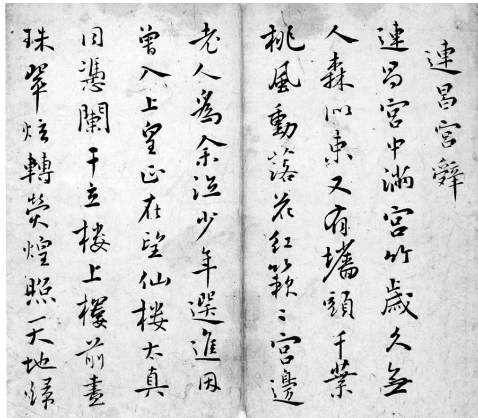 連昌宮辭
連昌宮中滿宮竹歲久無
人森似束又有墻頭千葉
桃風動落花紅簌〻宮邊
老人爲余泣少年選進因
曾入上皇正在望仙樓太真
同憑闌干立樓上樓前盡
珠翠炫轉熒煌照天地歸